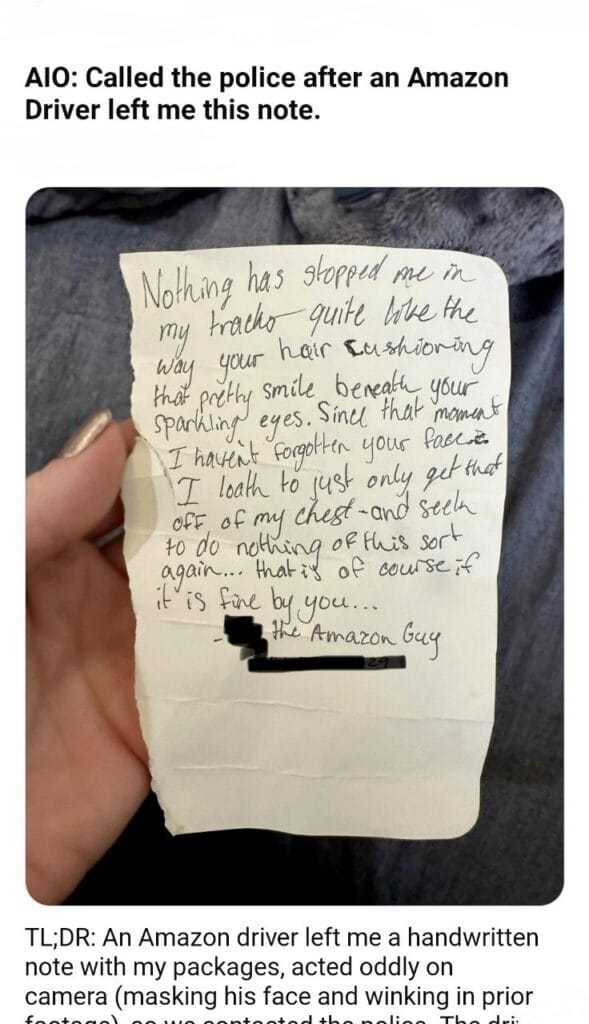 AIO: Called the police after an Amazon
Driver left me this note.
Nothing has stopped me in
my tracks quite like the
way your hair cushioning
that pretty smile beneath your
sparkling eyes. Since that moment
I haven't forgotten your face
I loath to just only get that
off of my chest - and seek
to do nothing of this sort
again... that is of course if
it is fine by you...
- the Amazon Guy
29
TL;DR: An Amazon driver left me a handwritten
note with my packages, acted oddly on
camera (masking his face and winking in prior
footage), so we contacted the police. The dri